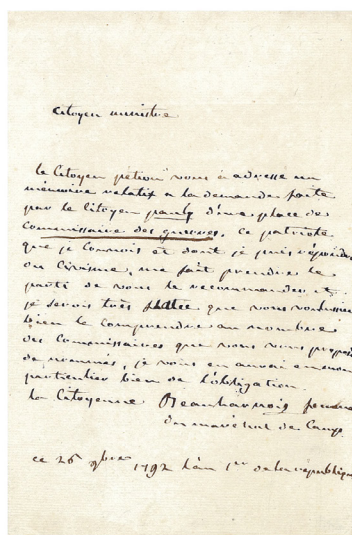 Citoyen ministre
le Citoyen pétion vous a adressé un
mémoire relatif a la demande faite
par le Citoyen pauly d'une place de
Commissaire des guerres, ce patriote
que je Connois et dont je puis répondre
du Civisme, me fait prendre le
parti de vous le recommander et
je serois très flattée que vous voulussiez
bien le comprendre au nombre
des Commissaires que vous vous proposez
de nommer, je vous en aurai en mon
particulier bien de l'obligation.
la Citoyenne Beauharnois femme
du maréchal de Camp
ce 26 9bre 1792 l'an 1er de la république